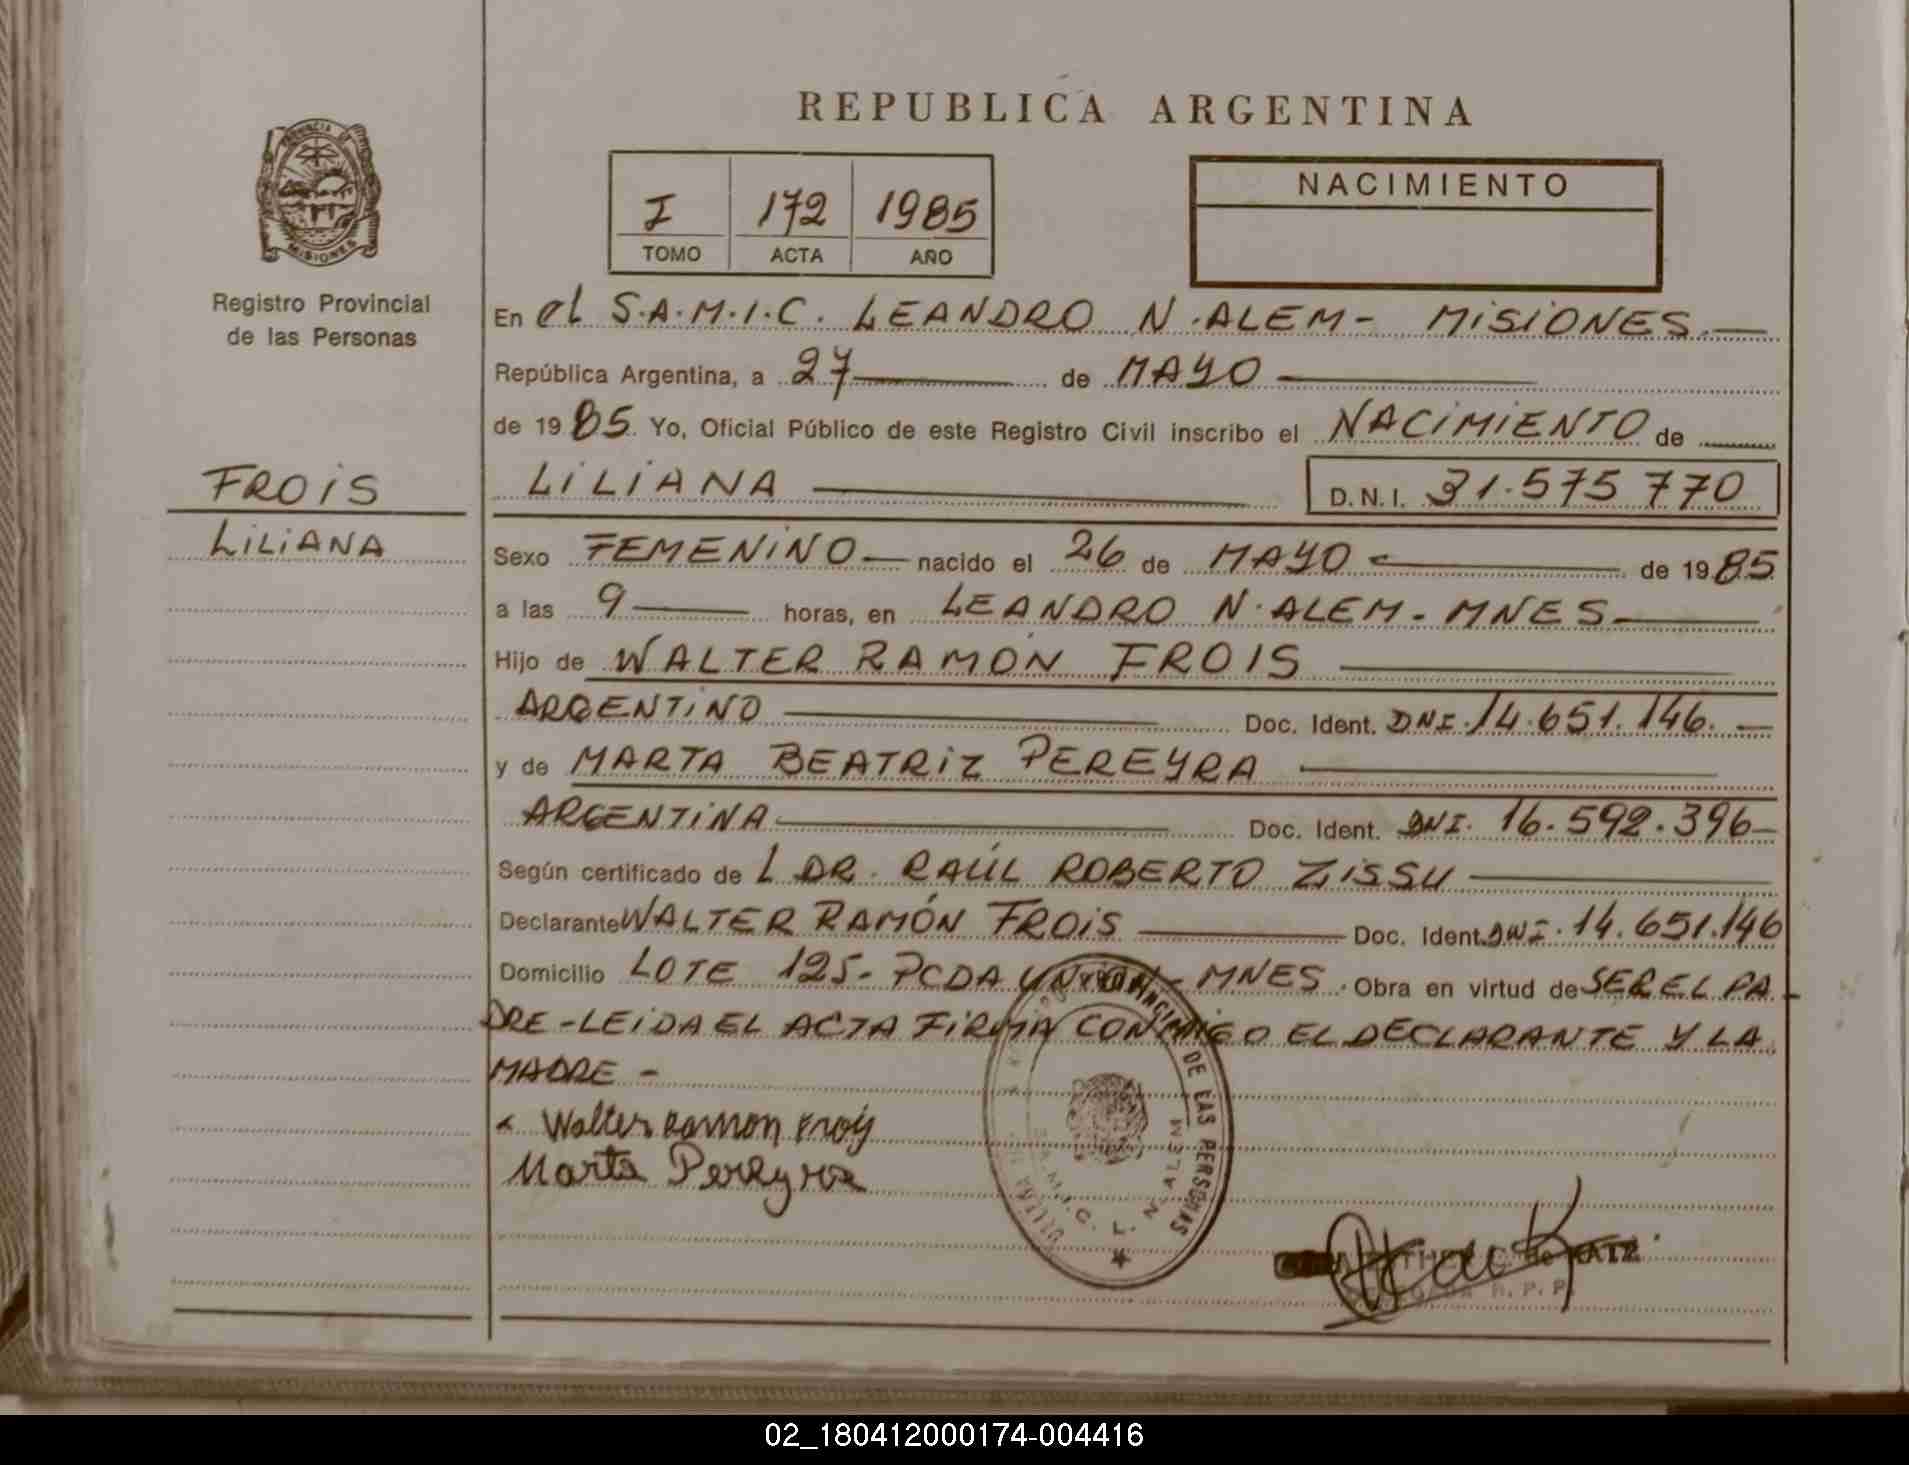 REPUBLICA ARGENTINA
PROVINCIA DE
MISIONES
Registro Provincial
de las Personas
I 172 1985
TOMO ACTA AÑO
NACIMIENTO
En el S.A.M.I.C. LEANDRO N. ALEM - MISIONES
República Argentina, a 27 de MAYO
de 1985. Yo, Oficial Público de este Registro Civil inscribo el NACIMIENTO de
FROIS
LILIANA
LILIANA D.N.I. 31.575 770
Sexo FEMENINO nacido el 26 de MAYO de 1985
a las 9 horas, en LEANDRO N. ALEM - MNES
Hijo de WALTER RAMÓN FROIS
ARGENTINO Doc. Ident. DNI. 14.651.146.
y de MARTA BEATRIZ PEREYRA
ARGENTINA Doc. Ident. DNI. 16.592.396
Según certificado de L DR. RAÚL ROBERTO ZISSU
Declarante WALTER RAMÓN FROIS Doc. Ident. DNI. 14.651.146
Domicilio LOTE 125 - PCDA UNIÓN - MNES. Obra en virtud de SER EL PA-
DRE - LEIDA EL ACTA FIRMA CONMIGO EL DECLARANTE Y LA
MADRE -
Walter Ramon Frois
Marta Pereyra
DE LAS PERSONAS
S.A.M.I.C. L. N. ALEM
R.P.P.
02_180412000174-004416